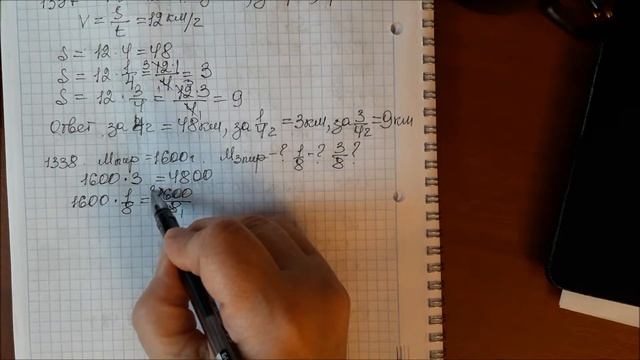 V = S/t = 12 км/г
S = 12 · 4 = 48
S = 12 · 1/4 = 12·1/4 = 3
S = 12 · 3/4 = 12·3/4 = 9
Ответ за 4г = 48км, за 1/4г = 3км, за 3/4г = 9км
1338. Mпир = 1600г. M3пир - ? 1/8 - ? 3/8 ?
1600 · 3 = 4800
1600 · 1/8 = 1600/8